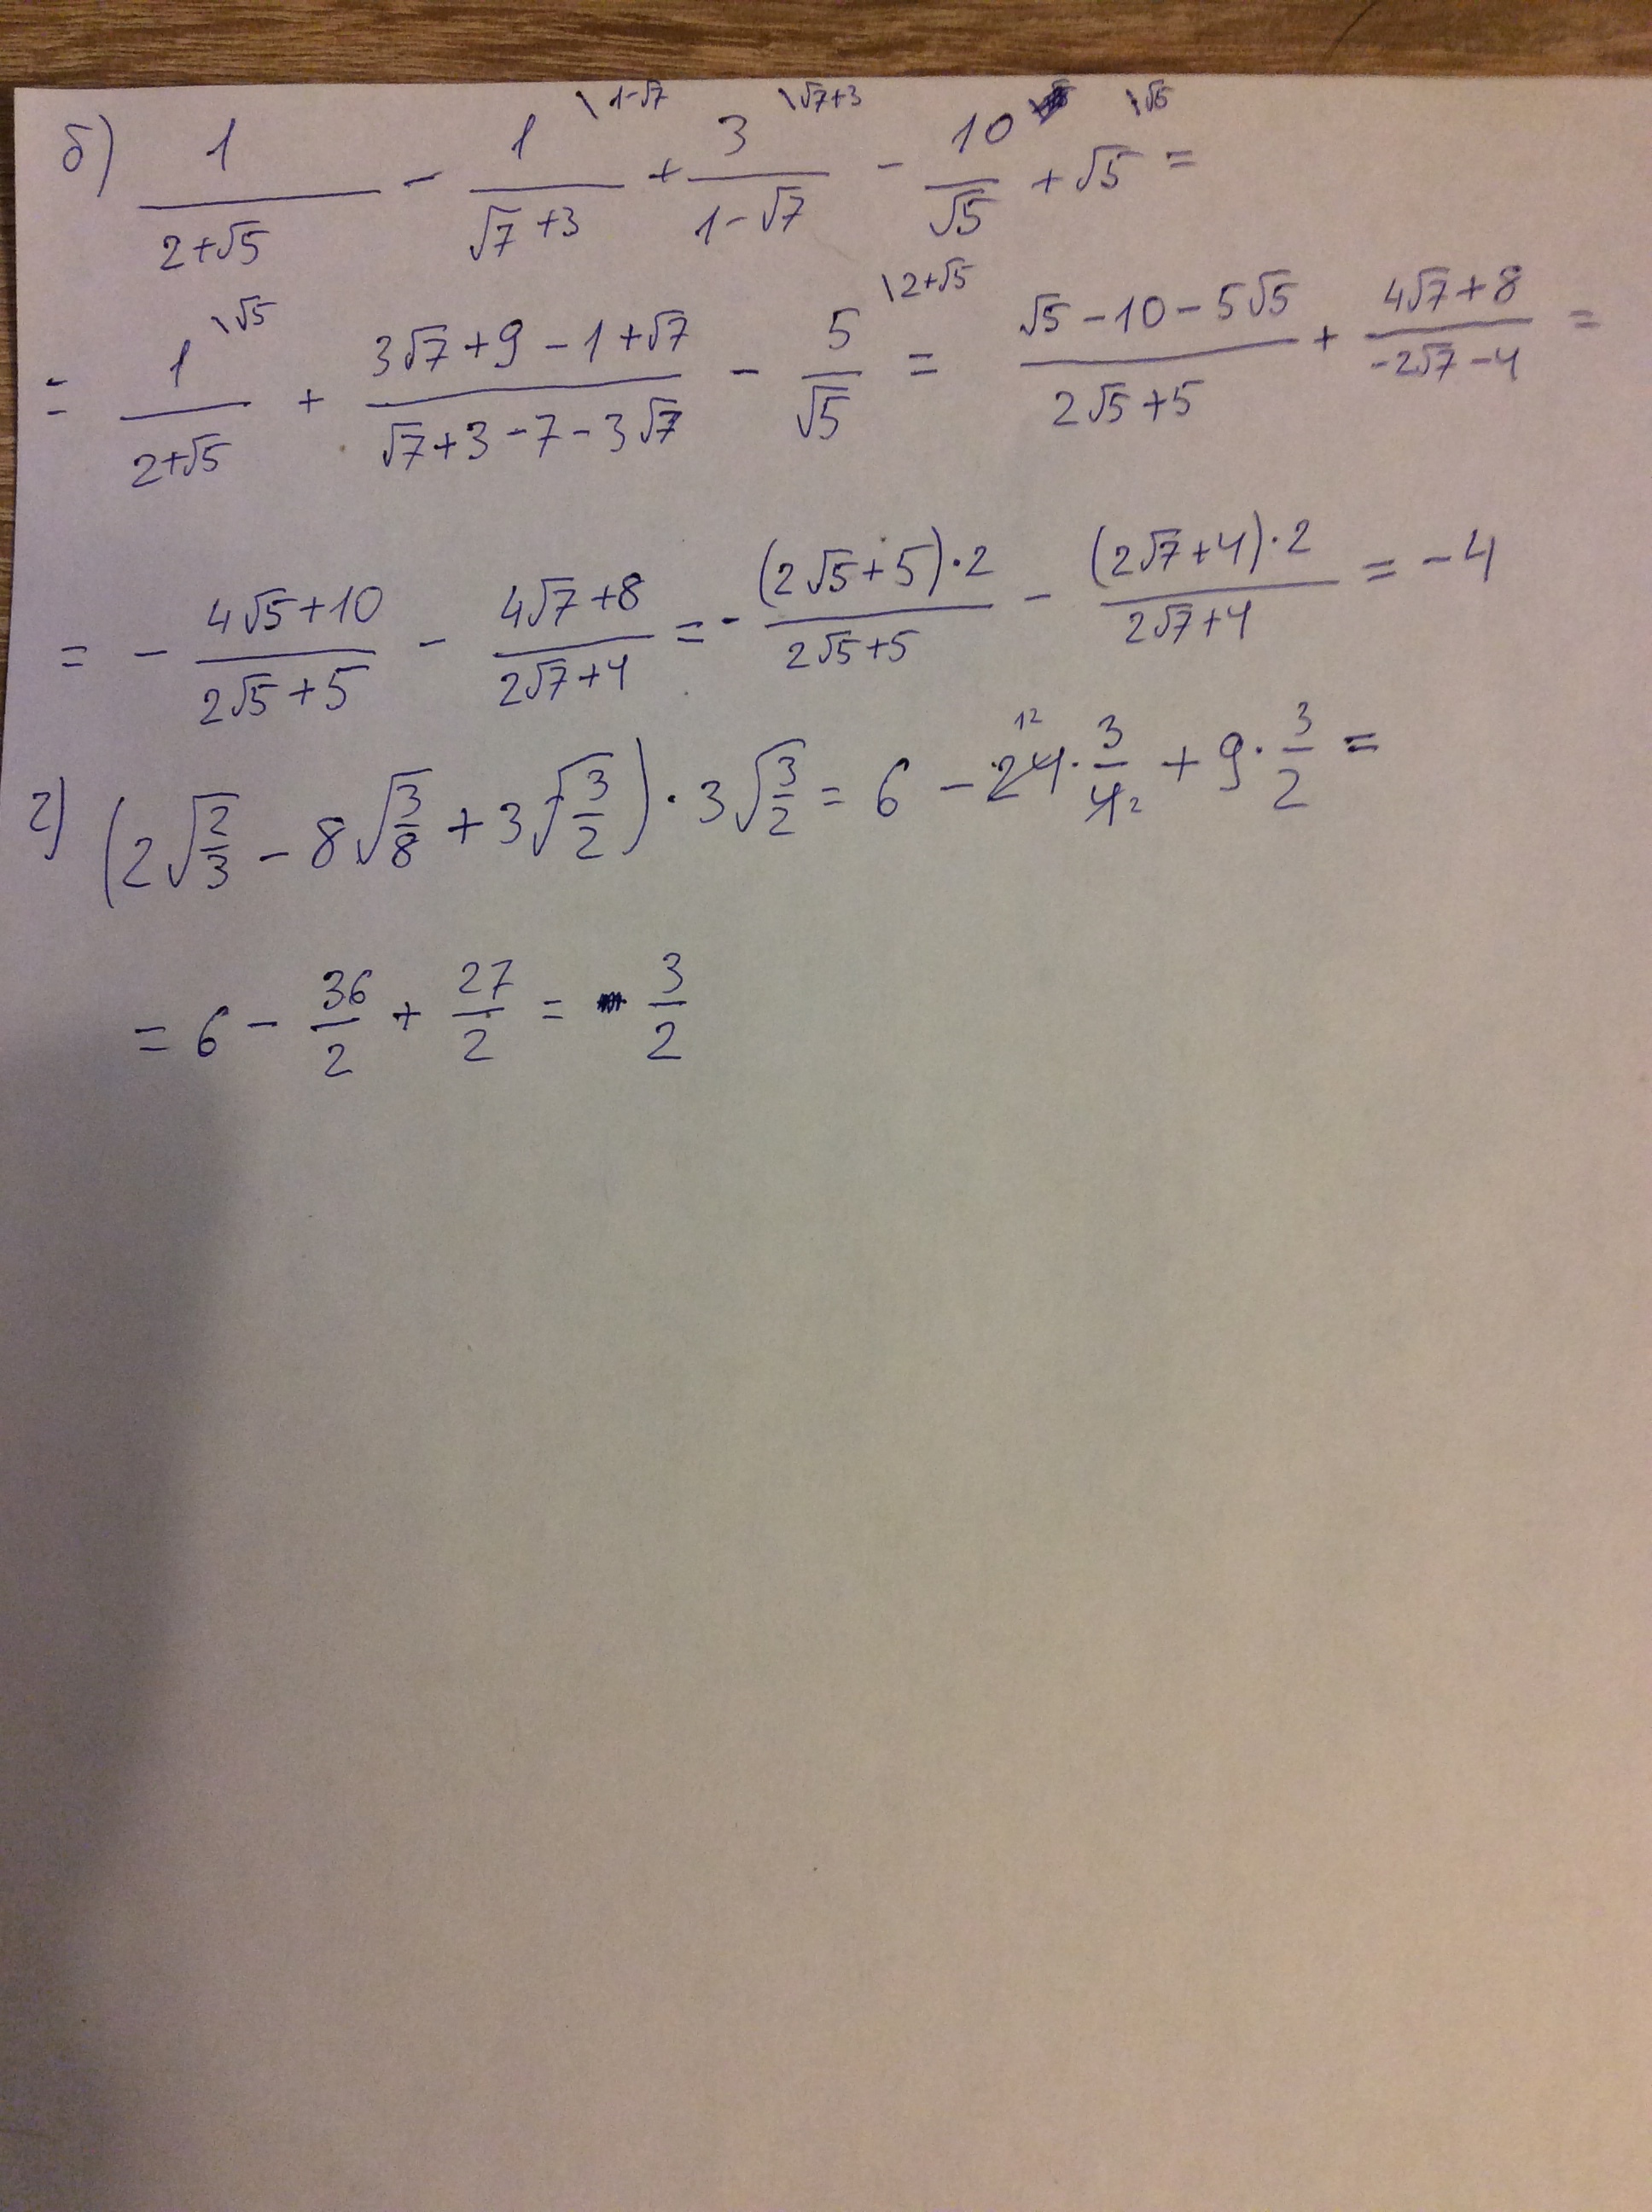 б) 1/(2+√5) - 1/(√7+3) \1-√7 + 3/(1-√7) \√7+3 - 10/√5 + √5 \√5 =
= 1/(2+√5) \√5 + (3√7+9-1+√7)/(√7+3-7-3√7) - 5/√5 \2+√5 = (√5-10-5√5)/(2√5+5) + (4√7+8)/(-2√7-4) =
= - (4√5+10)/(2√5+5) - (4√7+8)/(2√7+4) = - ((2√5+5)·2)/(2√5+5) - ((2√7+4)·2)/(2√7+4) = -4
г) (2√(2/3) - 8√(3/8) + 3√(3/2)) · 3√(3/2) = 6 - 24 12 · 3/4 2 + 9 · 3/2 =
= 6 - 36/2 + 27/2 = 3/2